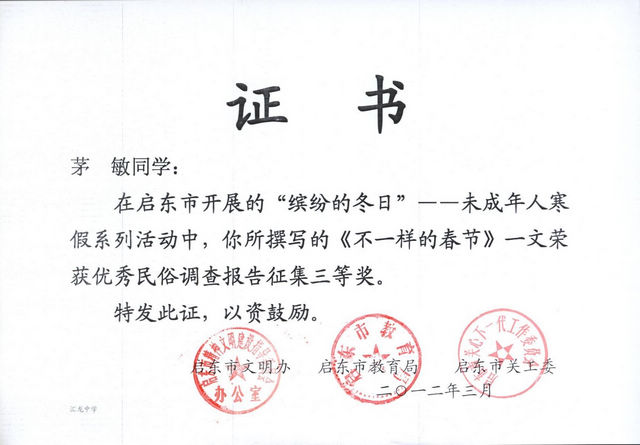 证 书
茅 敏同学:
在启东市开展的“缤纷的冬日”——未成年人寒
假系列活动中，你所撰写的《不一样的春节》一文荣
获优秀民俗调查报告征集三等奖。
特发此证，以资鼓励。
启东市文明办 启东市教育局 启东市关工委
办公室
启东市教育局
二〇一二年三月
汇龙中学